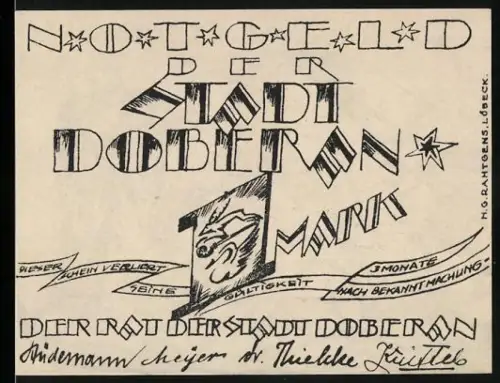 N★O★T★G★E★L★D
DER
STADT
DOBERAN★
1 MARK
DIESER SCHEIN VERLIERT SEINE GÜLTIGKEIT 3 MONATE NACH BEKANNTMACHUNG
DER RAT DER STADT DOBERAN
Meyer Dr. Thielcke
H.G.RAHTGENS, LÜBECK.